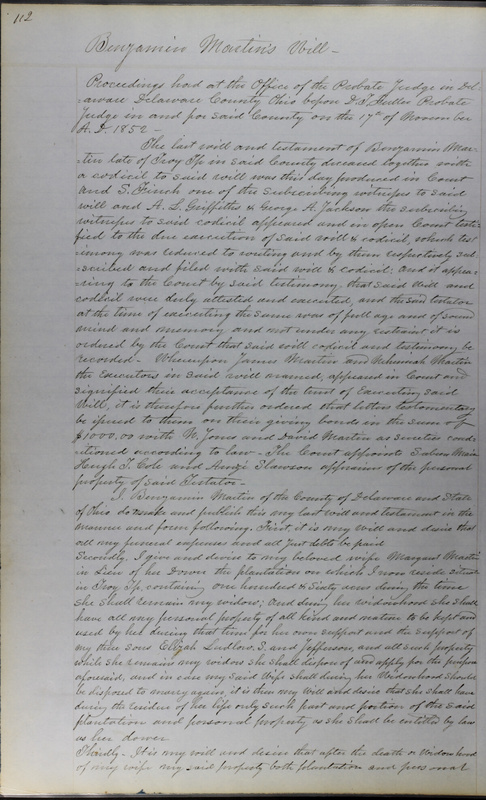 112
Benjamin Martin's Will -
Proceedings had at the Office of the Probate Judge in Del-
-aware Delaware County Ohio before D. T. Fuller Probate
Judge in and for said County on the 17th of November
A. D. 1852 -
The last will and testament of Benjamin Mar-
tin late of Troy Tp in said County deceased together with
a codicil to said will was this day produced in Court
and S. Finch one of the subscribing witness to said
will and A. L. Griffiths & George A. Jackson the subscribing
witness to said codicil appeared and in open Court testi-
fied to the due execution of said will & codicil, which test
-imony was reduced to writing and by them respectively sub
-scribed and filed with said will & codicil: and it appea-
-ring to the Court by said testimony, that said Will and
codicil were duly attested and executed, and the said testator
at the time of executing the same was of full age and of sound
mind and memory and not under any restraint it is
ordered by the Court that said will codicil and testimony be
recorded - Whereupon James Martin and Nehemiah Martin
the Executors in said will named, appeared in Court and
signified their acceptance of the trust of Executing said
Will, it is therefore further ordered that letters testamentary
be issued to them on their giving bonds in the sum of
$1000,00 with W. Jones and David Martin as sureties condi
-tioned according to law - The Court appoints
Hugh T. Cole and Slawson appraisers of the personal
property of said Testator -
I Benjamin Martin of the County of Delaware and State
of Ohio do make and publish this my last will and testament in the
manner and form following. First, it is my will and desire that
all my funeral expenses and all just debts be paid
Secondly, I give and devise to my beloved wife Margaret Martin
in Lieu of her Dower the plantation on which I now reside situate
in Troy Tp, containing one hundred & Sixty acres during the time
she shall remain my widow; and during her widowhood she shall
have all my personal property of all kind and nature to be kept and
used by her during that time for her own support and the support of
my three sons Elijah Ludlow, S. and Jefferson, and all such property
while she remain my widow she shall dispose of and apply for the purpose
aforesaid, and in case my said Wife shall during her Widowhood should
be disposed to marry again, it is then my Will and desire that she shall have
during the residue of her life only such part and portion of the said
plantation and personal property as she shall be entitled by law
as her dower
Thirdly - It is my will and desire that after the death or Widowhood
of my wife my said property both plantation and personal